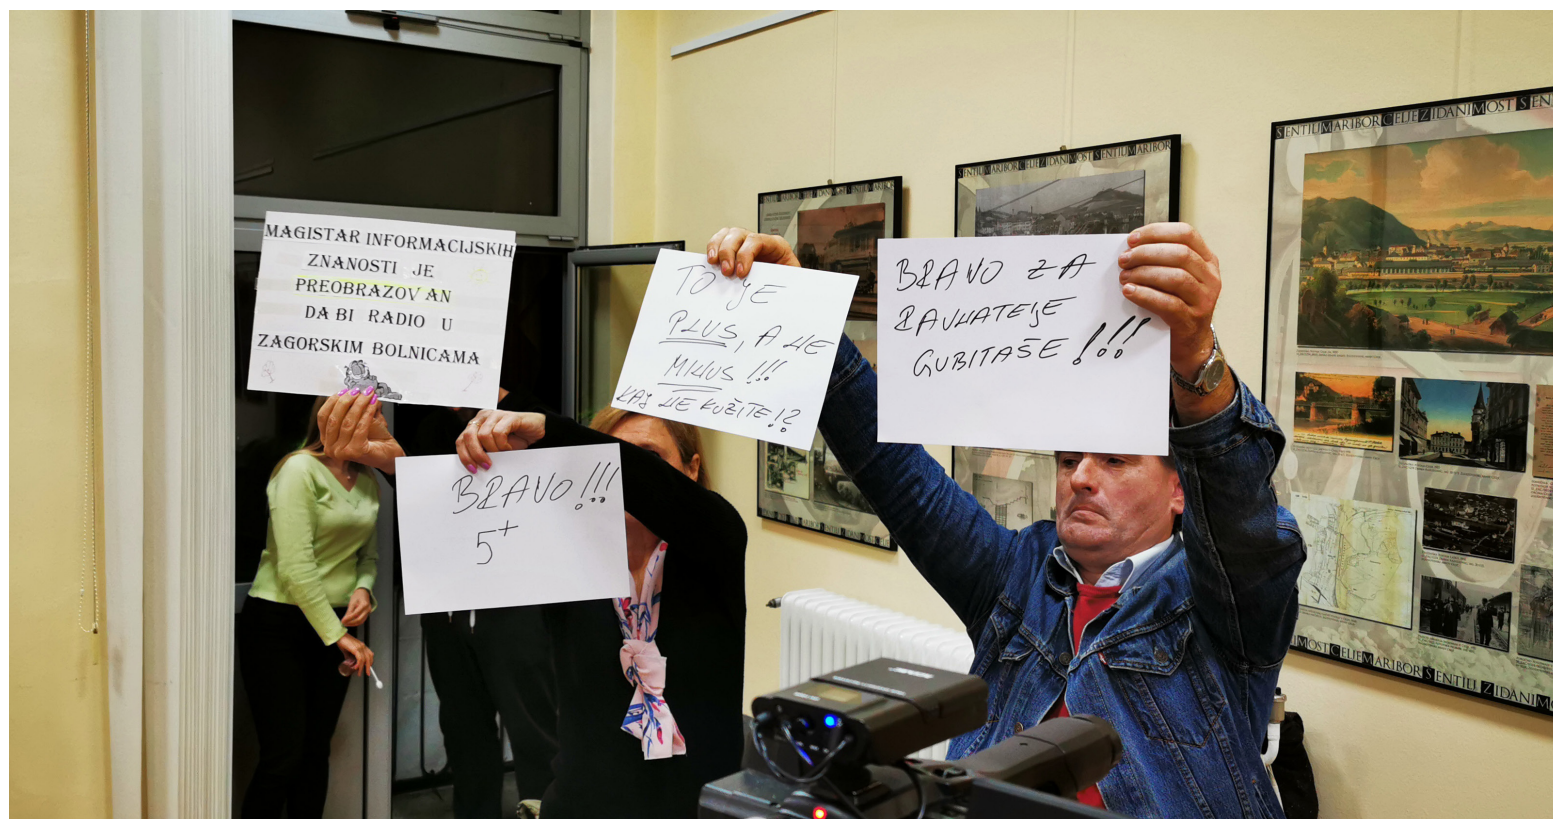 MAGISTAR INFORMACIJSKIH
ZNANOSTI JE
PREOBRAZOVAN
DA BI RADIO U
ZAGORSKIM BOLNICAMA
BRAVO!!!
5+
TO JE
PLUS, A NE
MINUS!!!
KAJ NE KUŽITE!?
BRAVO ZA
RAVNATELJE
GUBITAŠE!!!
ŠENTILJ MARIBOR CELJE ZIDANI MOST ŠENTILJ MARIBOR
ŠENTILJ MARIBOR CELJE ZIDANI MOST ŠEN
MOST CELJE MARIBOR ŠENTILJ ZIDANI M